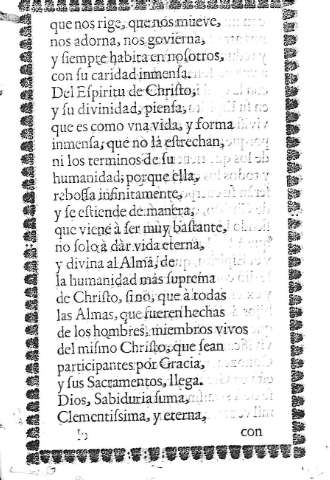 que nos rige, que nos mueve,
nos adorna, nos govierna,
y siempre habita en nosotros,
con su caridad inmensa.
Del Espiritu de Christo,
y su divinidad, piensa,
que es como vna vida, y forma
inmensa, que no la estrechan,
ni los terminos de su
humanidad; porque ella,
rebossa infinitamente,
y se estiende de manera,
que viene à ser muy bastante,
no solo à dàr vida eterna,
y divina al Alma, de
la humanidad màs suprema
de Christo, sino, que à todas
las Almas, que fueren hechas
de los hombres, miembros vivos
del mismo Christo, que sean
participantes por Gracia,
y sus Sacramentos, llega.
Dios, Sabiduria suma,
Clementissima, y eterna,
con